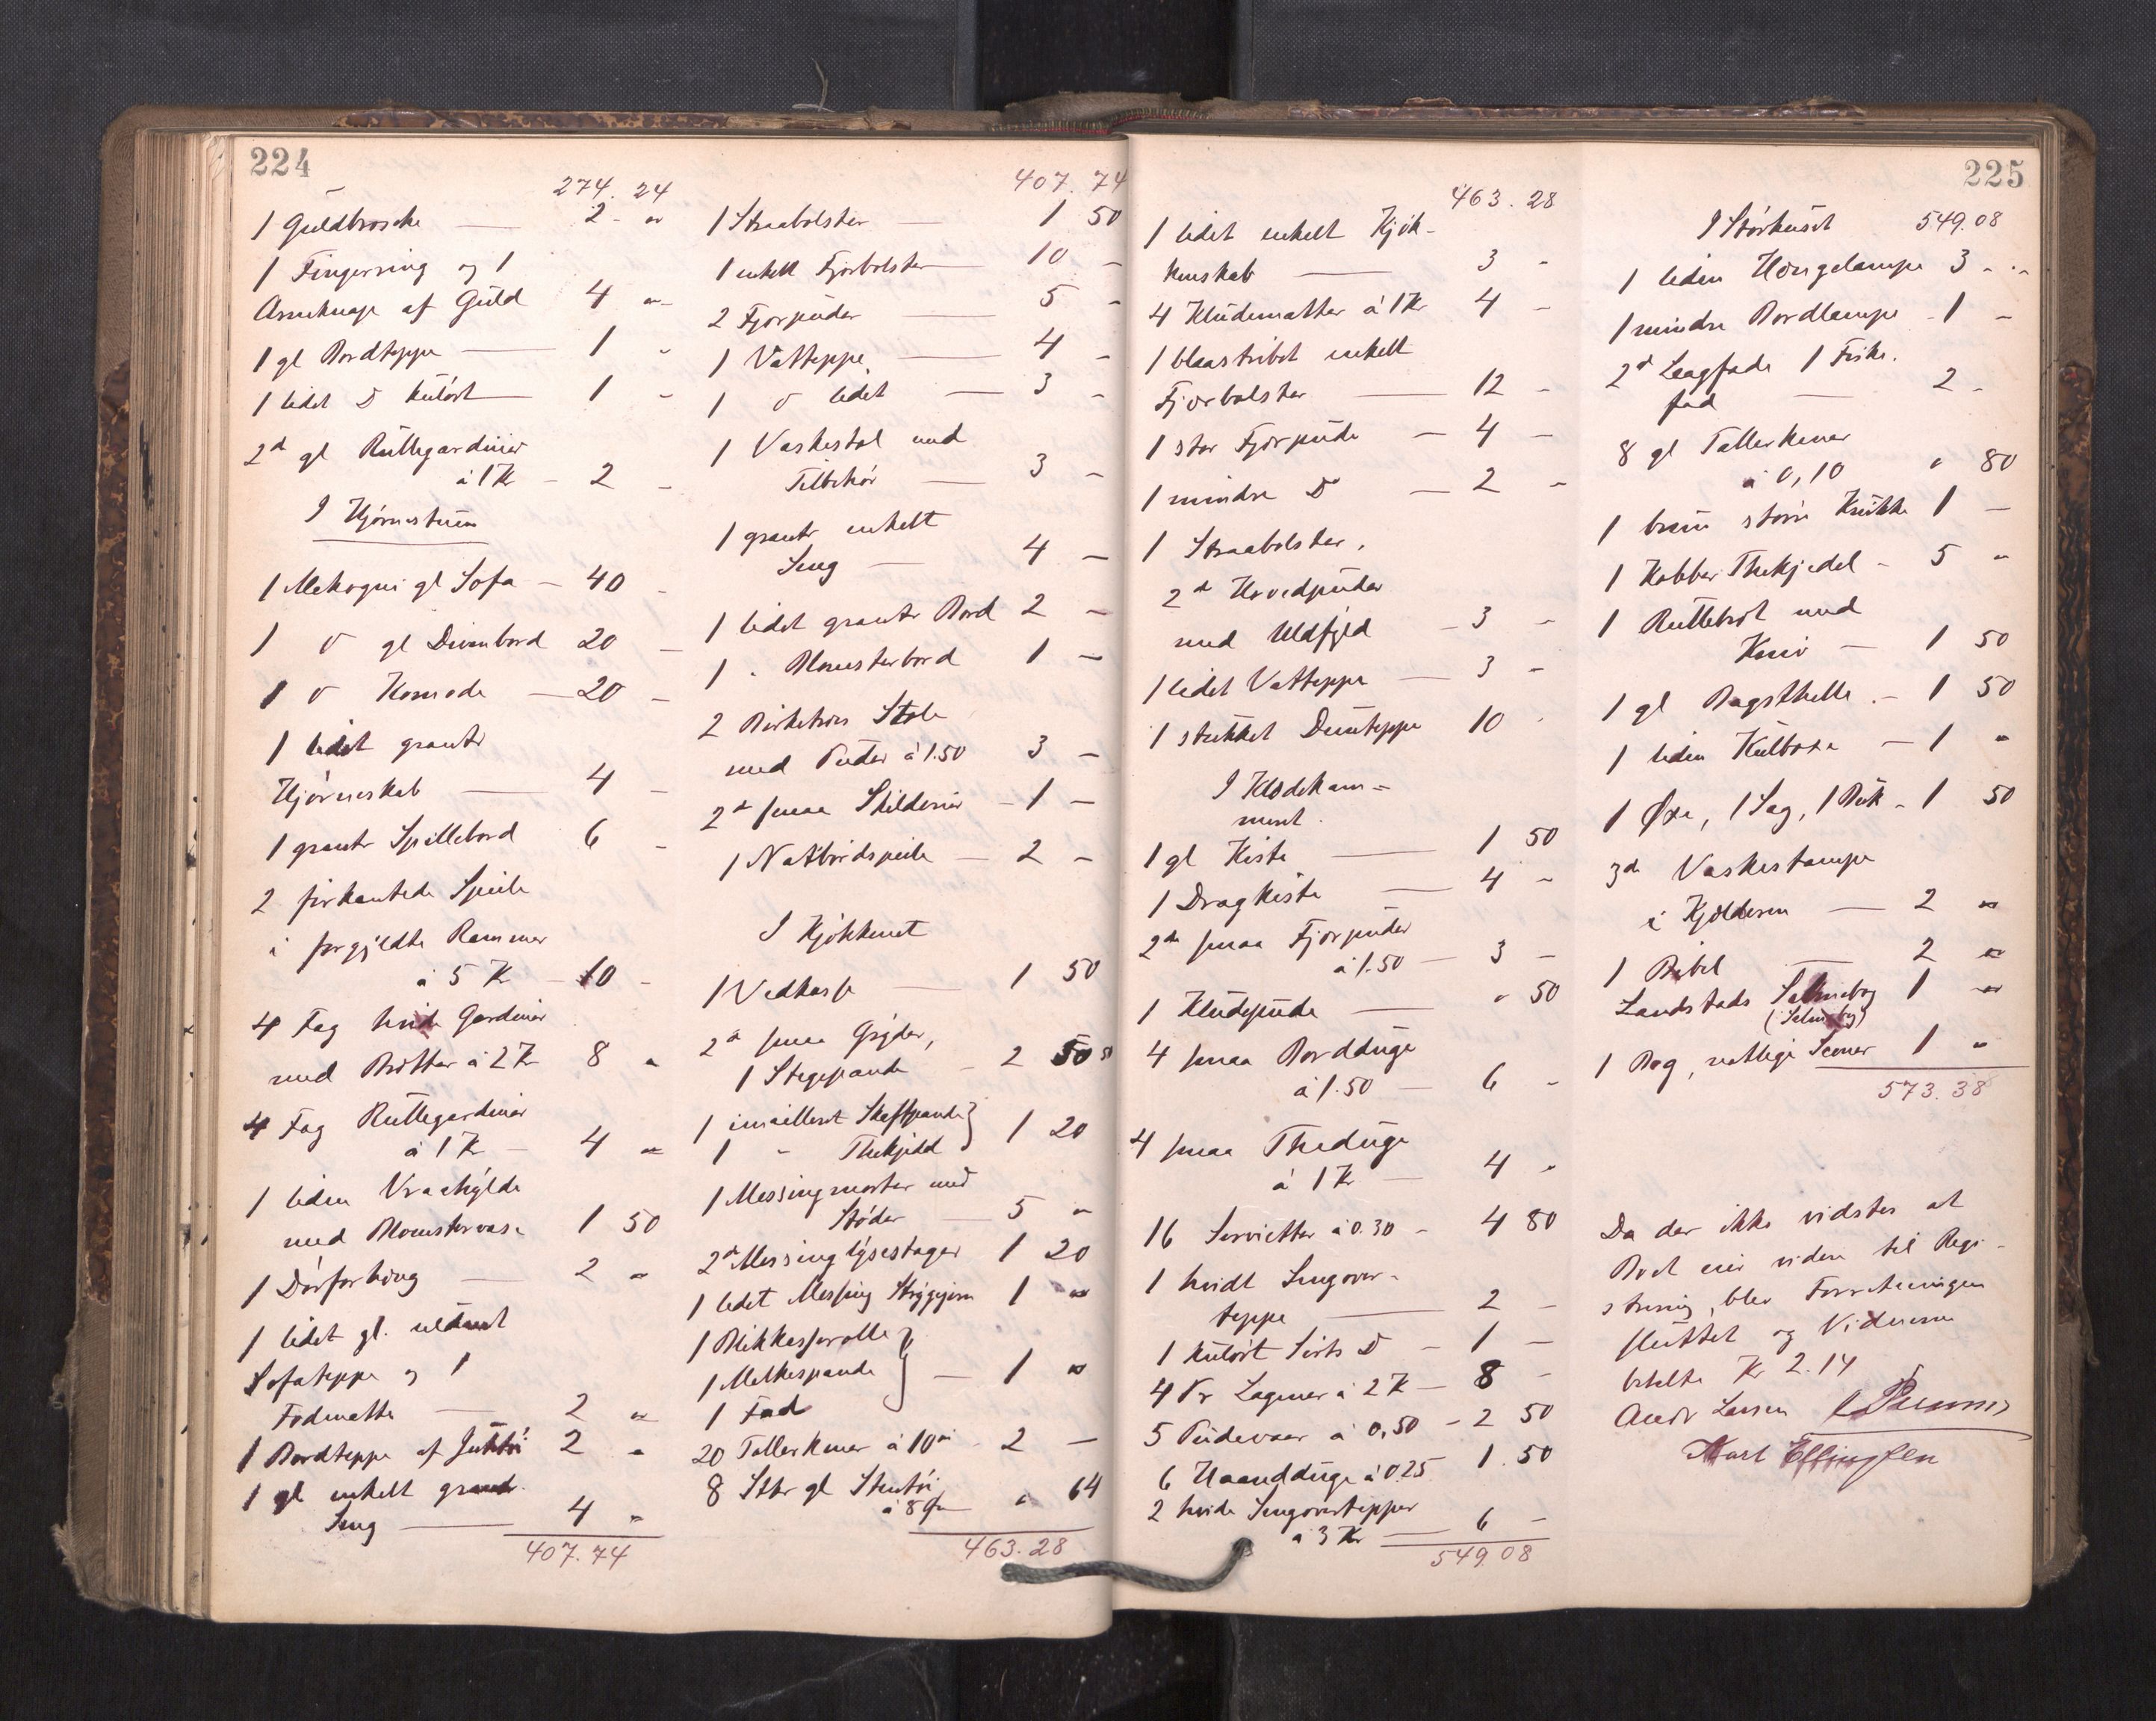 224
274. 24
1 Guldbrosche — 2 - "
1 Fingerring og 1
Armknap af Guld 4 "
1 gl Bordteppe — 1 -
1 lidet D kulört — 1 -
2d gl Rullegardiner
à 1 Kr - 2 -
I Hjörnestuen
1 Mahogni gl Sofa — 40 -
1 D gl Divanbord 20 -
1 D Komode — 20 -
1 lidet grantr
Hjörneskab — 4 -
1 grantr Spillebord 6 -
2 firkantede Speile
i forgyldte Rammer
à 5 K — 10 -
4 Fag hvide Gardiner
med Britter à 2 K 8 "
4 Fag Rullegardiner
à 1 K — 4 "
1 liden Vraahylde
med Blomstervase 1 50
1 Dörforhæng — 2 "
1 lidet gl. uldent
Sofateppe og 1
Fodmatte — 2 "
1 Bordteppe af Jutetöi 2 "
1 gl enkelt grantr.
Seng — 4 "
407. 74
407. 74
1 Straabolster — 1 50
1 enkelt Fjærbolster — 10 -
2 Fjærpuder — 5 -
1 Vatteppe — 4 -
1 D lidet — 3 -
1 Vaskestol med
Tilbehör — 3 -
1 grantr enkelt
Seng — 4 -
1 lidet grantr Bord 2 -
1 " Blomsterbord 1 -
2 Birketræs Stole
med Puder à 1.50 3 -
2d smaa Skilderier - 1 -
1 Natbordspeile — 2 -
I Kjökkenet
1 Vedkasse — 1 50
2d smaa Gryder,
1 Stegepande - 2 50
1 emailleret Skaftpande }
1 - Thekjedel } 1 20
1 Messingmorter med
Stöder — 5 "
2d Messinglysestager 1 20
1 lidet Messing Strygejern 1 "
1 Blikkasserolle }
1 Melkespande } — 1 "
1 Fad
20 Tallerkener à 10 - 2 —
8 Stkr gl Stentöi
à 8 " 64
463. 28
225
463. 28
1 lidet enkelt Kjök-
kenskab — 3 -
4 Kludematter à 1 Kr 4 -
1 blaastribet enkelt
Fjærbolster — 12 -
1 stor Fjærpude — 4 -
1 mindre D — 2 -
1 Straabolster,
2d Hovedpuder
med Uldfyld - 3 -
1 lidet Vatteppe — 3 -
1 stukket Dunteppe 10 -
I Klædekam=
meret.
1 gl Kiste — 1 50
1 Dragkiste — 4 -
2de smaa Fjærpuder
à 1.50 — 3 -
1 Kludepude — " 50
4 smaa Borddüge
à 1.50 — 6 -
4 smaa Thedüge
à 1 Kr — 4 "
16 Servietter à 0.30 - 4 80
1 hvidt Sengover-
teppe — 2 -
1 kulört Sirts D - 1 -
4 Pr Lagener à 2 K — 8 -
5 Pudevaar à 0,50 - 2 50
6 Haandduge à 0.25 1. 50
2 hvide Sengovertepper
à 3 Kr — 6 -
549 08
I Störhuset 549.08
1 liden Hængelampe 3 - "
1 mindre Bordlampe - 1 -
2d Lagfade 1 Fiske.
fad — 2 -
8 gl Tallerkener
à 0,10 " 80
1 brun större Krukke 1 -
1 Kobber Thekjedel - 5 "
1 Rullebræt med
Kniv — 1 50
1 gl Bagsthelle. - 1 50
1 liden Kulboxe — 1 "
1 Øxe, 1 Sag, 1 Bök - 1 50
3de Vaskestampe
i Kjælderen — 2 "
1 Bibel — 2 "
Landstads Salmebog 1 "
(Salmebog)
1 Bog, Scener 1 "
573. 38
Da der ikke vidstes at
Boet eier videre til Regi-
strering, blev Forretningen
sluttet og Vidnerne
betalte Kr 2.14
Andr Larsen
Karl Ellingsen